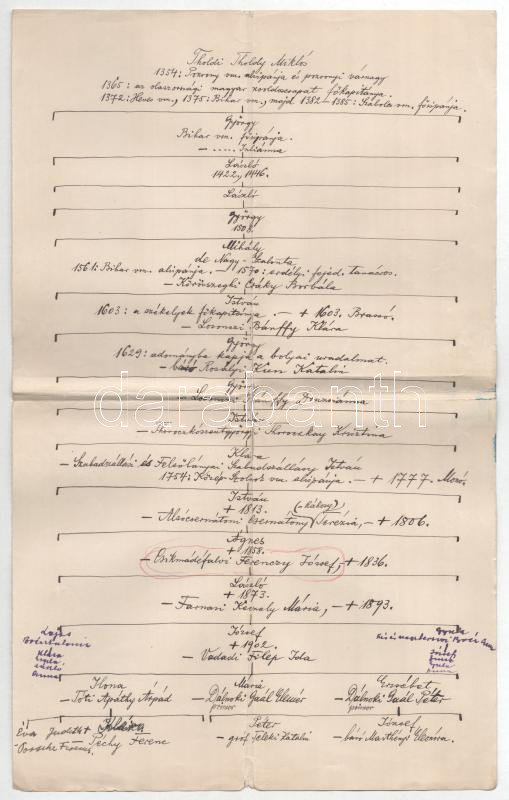 Tholdi Tholdy Miklós
1354: Pozsony vm. alispánja és pozsonyi várnagy
1365: az olaszországi magyar zsoldoscsapat főkapitánya.
1372: Heves vm., 1375: Bihar vm., majd 1382-1385: Szabolcs vm. főispánja.
György
Bihar vm. főispánja.
- ..... Juliánna
László
1422, 1446.
László
György
1508.
Mihály
de Nagy-Szalonta
1561: Bihar vm. alispánja. - 1570: erdélyi fejed. tanácsos.
- Körösszegki Csáky Borbála
István
1603: a székelyek főkapitánya. - + 1603. Brassó.
- Losonczi Bánffy Klára
György
1629: adományba kapja a bolyai uradalmat.
- Rozsályi Kun Katalin
György
- Losonczi Bánffy Druzsiánna
István
- Thoroczkószentgyörgyi Thoroczkay Krisztina
Klára
- Szabadszállási és Felsőbányai Szabadszállásy István
1754: Közép Szolnok vm. alispánja. - + 1777.
István
+ 1813.
- Alsócsernátoni Csernátony Terézia, - + 1806.
Ágnes
+ 1858.
- Csikmádéfalvi Ferenczy József, + 1836.
László
+ 1873.
- Farnasi Keczely Mária, - + 1893.
József
+ 1902.
- Vadadi Fülep Ida
Lajos
Klára
Gyula
László
Anna
Gyula
József
Gyula
Anna
Ilona
- Tóti Apáthy Árpád
Mária
- Dálnoki Gaál Elemér
Erzsébet
- Dálnoki Gaál Péter
Éva Judith +
Ferenc.
Ildikó
Péchy Ferenc
Péter
- gróf Teleki Katalin
József
- báró Marthényi Eleonóra.
darabanth